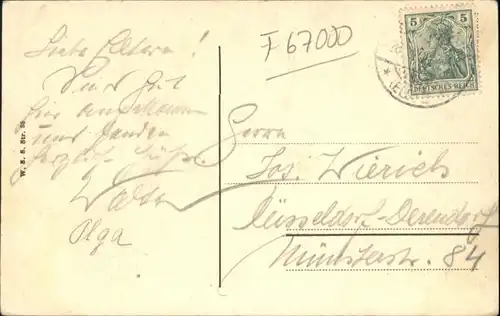 Liebe Eltern!
Sind gut
hier angekommen
und senden
herzliche Grüße
Walter
Olga
F 67000
5 5
DEUTSCHES REICH
W. S. S. Str. 38
Herrn
Jos. Wierich
Düsseldorf-Derendorf
Münsterstr. 84